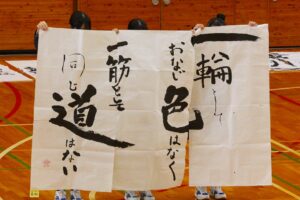 一輪として
おなじ
色はなく
一筋とて
同じ
道はない